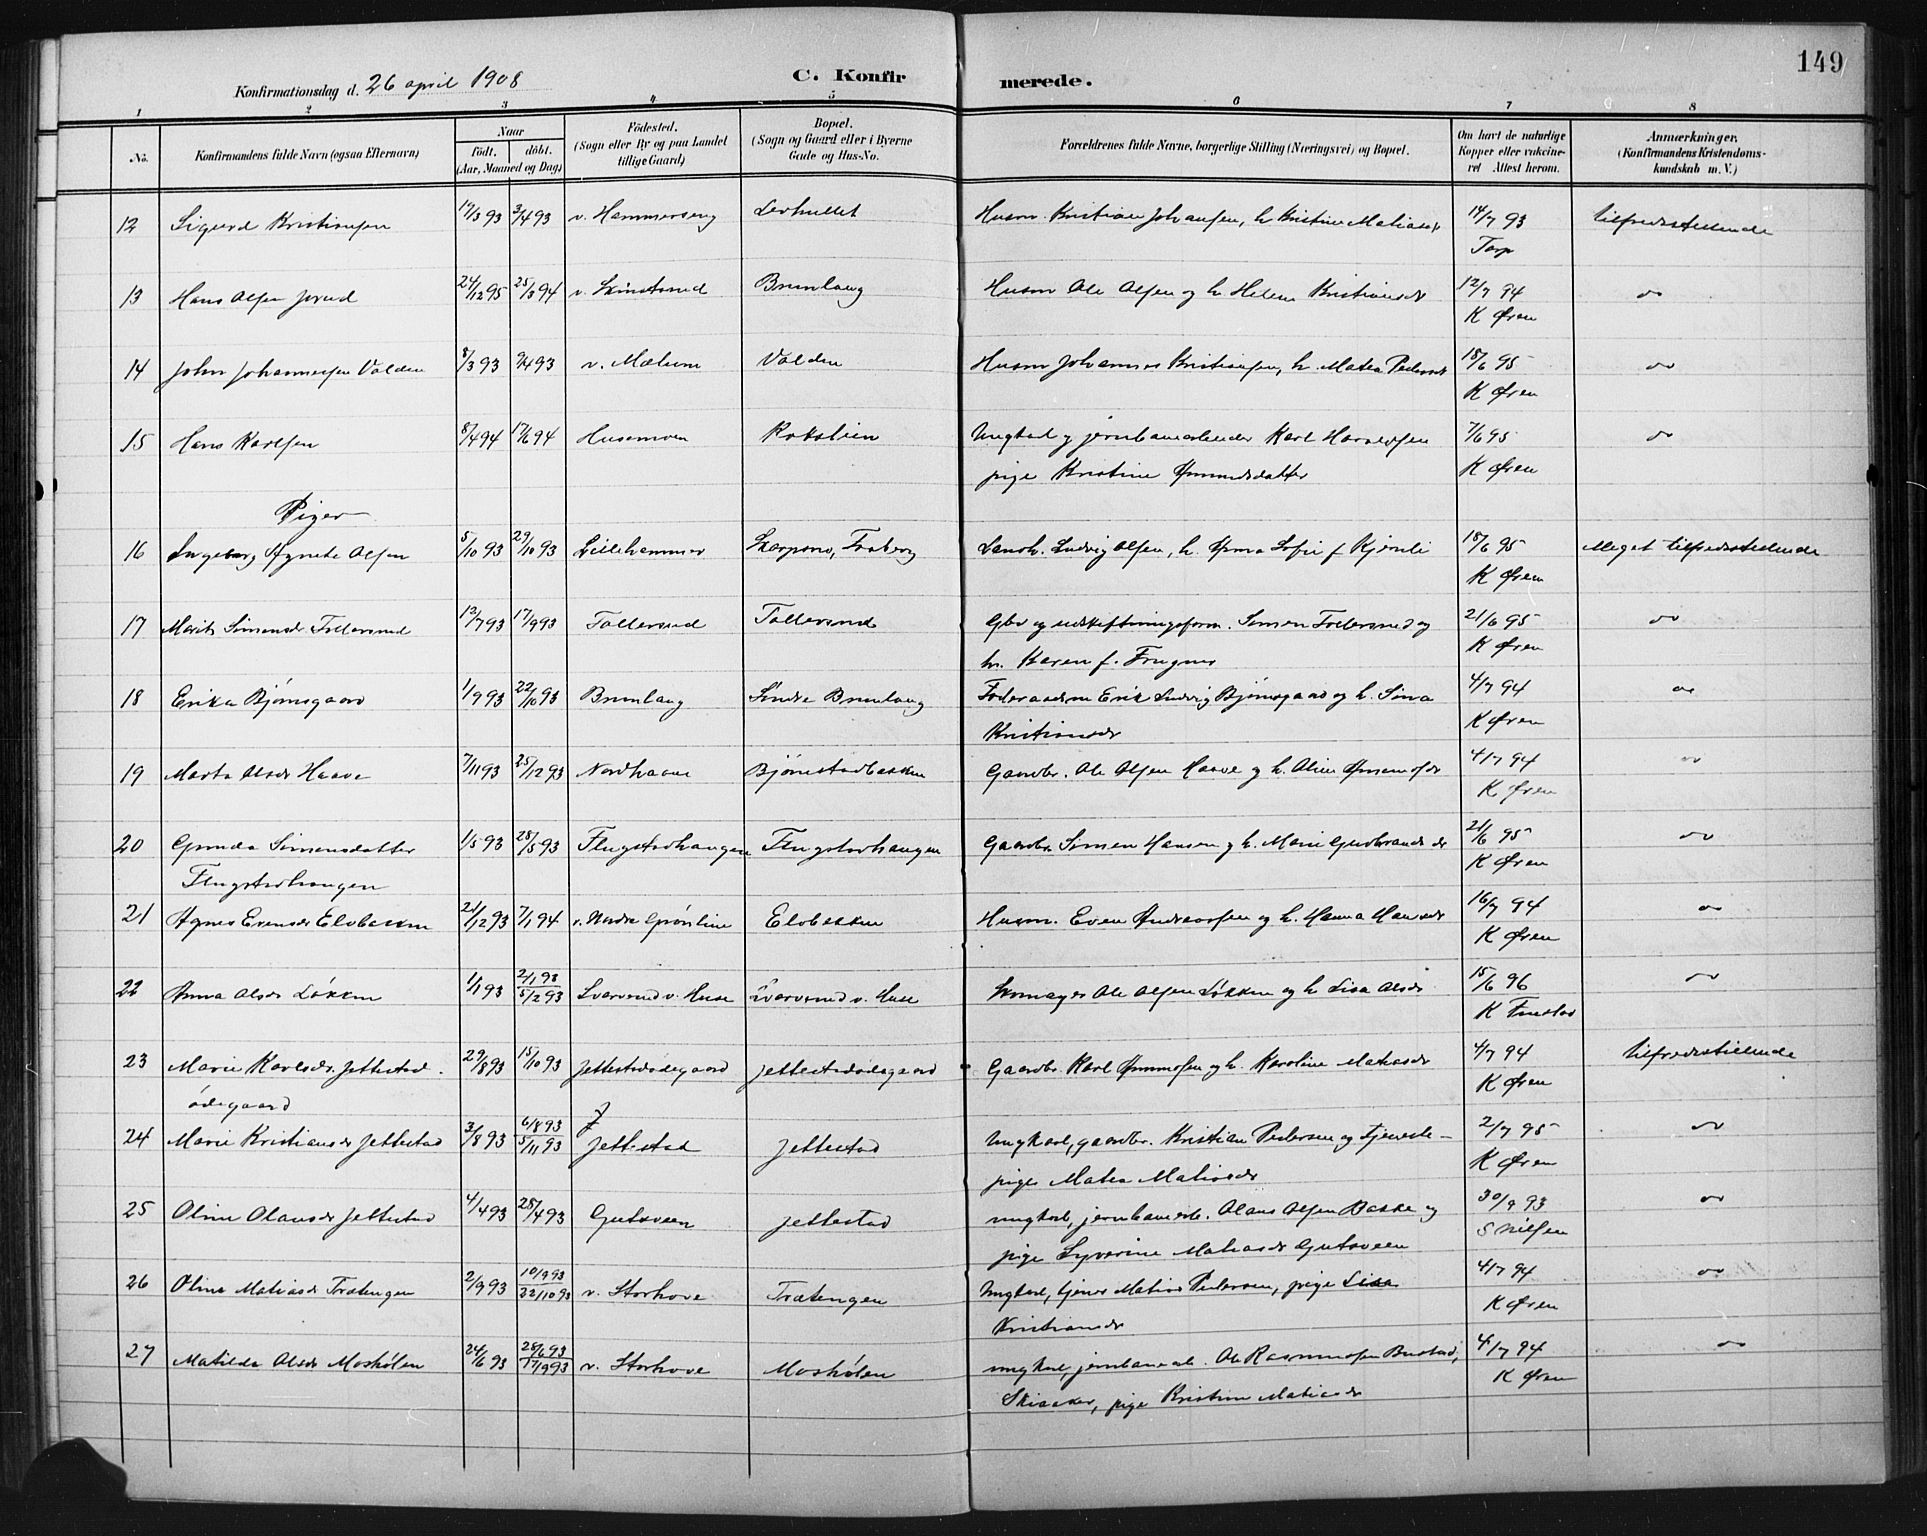 149
Konfirmationsdag d. 26 april 1908
C. Konfirmerede.
1 2 3 4 5 6 7 8
No.
Konfirmandens fulde Navn (ogsaa Efternavn)
Naar
födt. döbt.
(Aar, Maaned og Dag)
Födested.
(Sogn eller By og paa Landet
tillige Gaard)
Bopæl.
(Sogn og Gaard eller i Byerne
Gade og Hus-No.
Forældrenes fulde Navne, borgerlige Stilling (Næringsvei) og Bopæl.
Om havt de naturlige
Kopper eller vakcine-
ret Attest herom.
Anmærkninger.
(Konfirmandens Kristendoms-
kundskab m. V.)
12 Sigurd Kristiansen 19/3 93 3/4 93 v. Hammerseng Husm. Kristian Johansen, h. Kristine Matiasd 14/7 93 tilfredsstillende
Torp
13 Hans Olsen 24/12 95 25/3 94 Brunlaug Husm Ole Olsen og h. Helene Kristiansdr 12/7 94 "
K Øren
14 John Johannessen Valden 8/3 93 9/4 93 v. Mælum Valden Husm Johannes Kristiansen, h. Matea Pedersdr 18/6 95 "
K Øren
15 Hans Karlsen 8/4 94 17/6 94 Husemoen Ungkarl og jernbanearbeider Karl 7/6 95 "
pige Kristine Amundsdatter K Øren
Piger
16 Ingeborg Agnete Olsen 5/10 93 29/10 93 Lillehammer Skarpsno, Faaberg Ludvig Olsen, h. Anna Sofie f. Kjernli 18/6 95 Meget tilfredsstillende
K Øren
17 Marit Simensdr Tollersrud 12/7 93 17/9 93 Tollersrud Tollersrud Gbr og udskiftningsform. Simen Tollersrud og 21/6 95 "
h. Karen f. Frugner K Øren
18 Erika Bjørnsgaard 1/9 93 22/10 93 Brunlaug Søndre Brunlaug Føderaadsm Erik Ludvig Bjørnsgaard og h. Sina 4/7 94 "
Kristiansdr K Øren
19 Marta Olsdr Haave 7/11 93 25/12 93 Nordhaave Bjørnstadbakken Gaardbr. Ole Olsen Haave og h. Oline 4/7 94 "
K Øren
20 Gunda Simensdatter 1/5 93 28/5 93 Flugstadhaugen Flugstadhaugen Gaardbr. Simen Hansen og h. Marie Gudbrandsdr 21/6 95 "
Flugstadhaugen K Øren
21 Agnes Evensdr Elvbakken 21/12 93 7/1 94 v. Nordre Grønline Elvbakken Husm. Even Andreassen og h. Hanna Hansdr 16/7 94 "
K Øren
22 Anna Olsdr Løkken 1/1 93 2/1 93 Svarverud v. Huse Svarverud v. Huse Skomager Ole Olsen Løkken og h. Lisa Olsdr 15/6 96 "
5/2 93 K
23 Marie Karlsdr. Jettestad- 29/8 93 15/10 93 Jettestadødegaard Jettestadødegaard Gaardbr. Karl og h. Karoline Matiasdr 4/7 94 tilfredsstillende
ødegaard K Øren
24 Marie Kristiansdr Jettestad 3/8 93 6/8 93 Jettestad Jettestad Ungkarl, gaardbr. Kristian Pedersen og tjeneste- 2/7 95 "
5/11 93 pige Matea Matiasdr K Øren
25 Oline Olausdr Jettestad 4/4 93 28/4 93 Gutuveen Jettestad ungkarl, jernbanearb. Olaus Olsen Bakke og 30/9 93 "
pige Syverine Matiasdr Gutuveen S Nilsen
26 Oline Matiasdr Trætengen 2/9 93 10/9 93 v. Storhove Trætengen Ungkarl, tjener Matias Pedersen, pige Lisa 4/7 94 "
22/10 93 Kristiansdr K Øren
27 Matilde Olsdr Moshølen 24/6 93 28/6 93 v. Storhove Moshølen ungkarl, jernbanearb. Ole Rasmussen Bustad, 4/7 94 "
17/9 93 Skiaker, pige Kristine Matiasdr K Øren